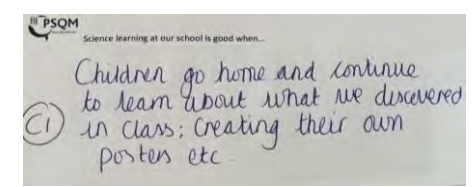 PSQM
Science learning at our school is good when...
Children go home and continue
to learn about what we discovered
C1 in class; creating their own
posters etc